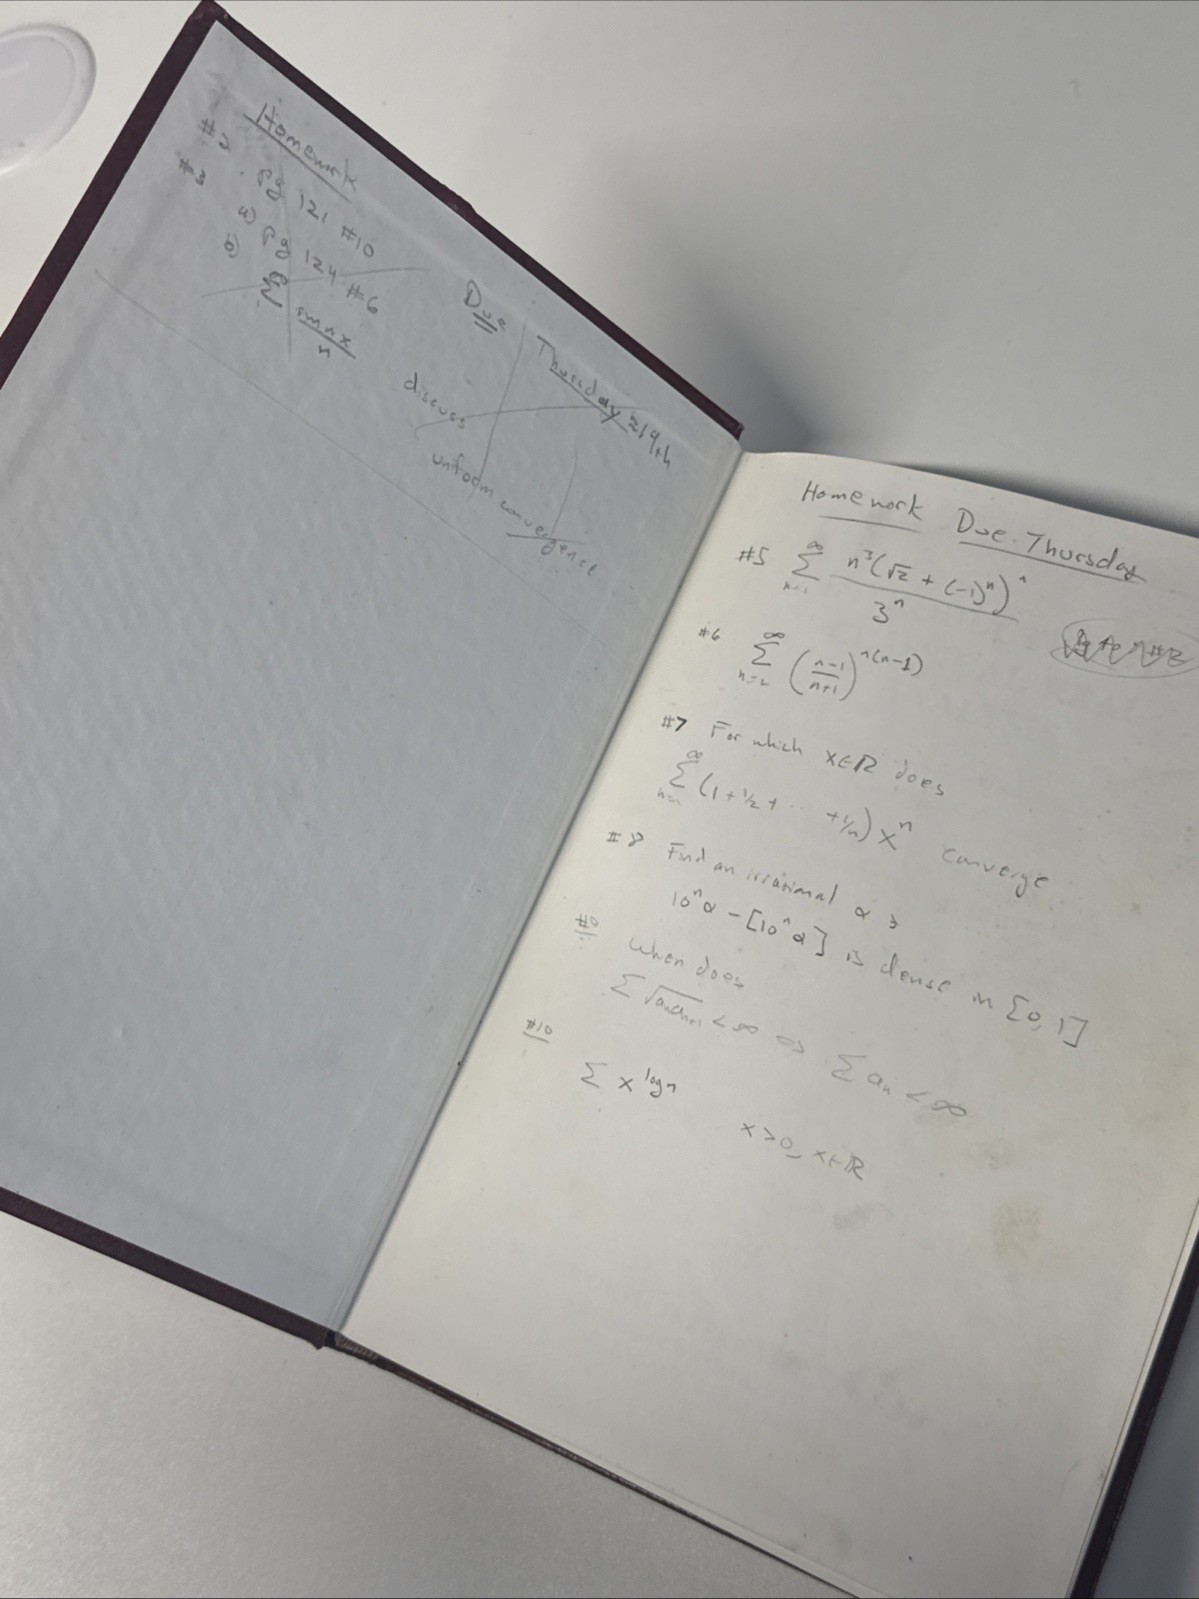 Homework
#2 . Pg 121 #10
#3 a) Pg 124 #6
b) Σ sin nx / n
Due Thursday 2/9th
discuss
uniform convergence
Homework Due Thursday
#5 ∞ Σ n=1 n³(√2 + (-1)ⁿ)ⁿ / 3ⁿ
#6 ∞ Σ n=2 (n-1 / n+1)ⁿ⁽ⁿ⁻¹⁾
#7 For which x∈ℝ does
∞ Σ n=1 (1 + 1/2 + ··· + 1/n) xⁿ converge
#8 Find an irrational α ∍
10ⁿα - [10ⁿα] is dense in [0, 1]
When does
Σ √aₙaₙ₊₁ < ∞ ⇔ Σ aₙ < ∞
#10
Σ x^log n
x > 0, x∈ℝ